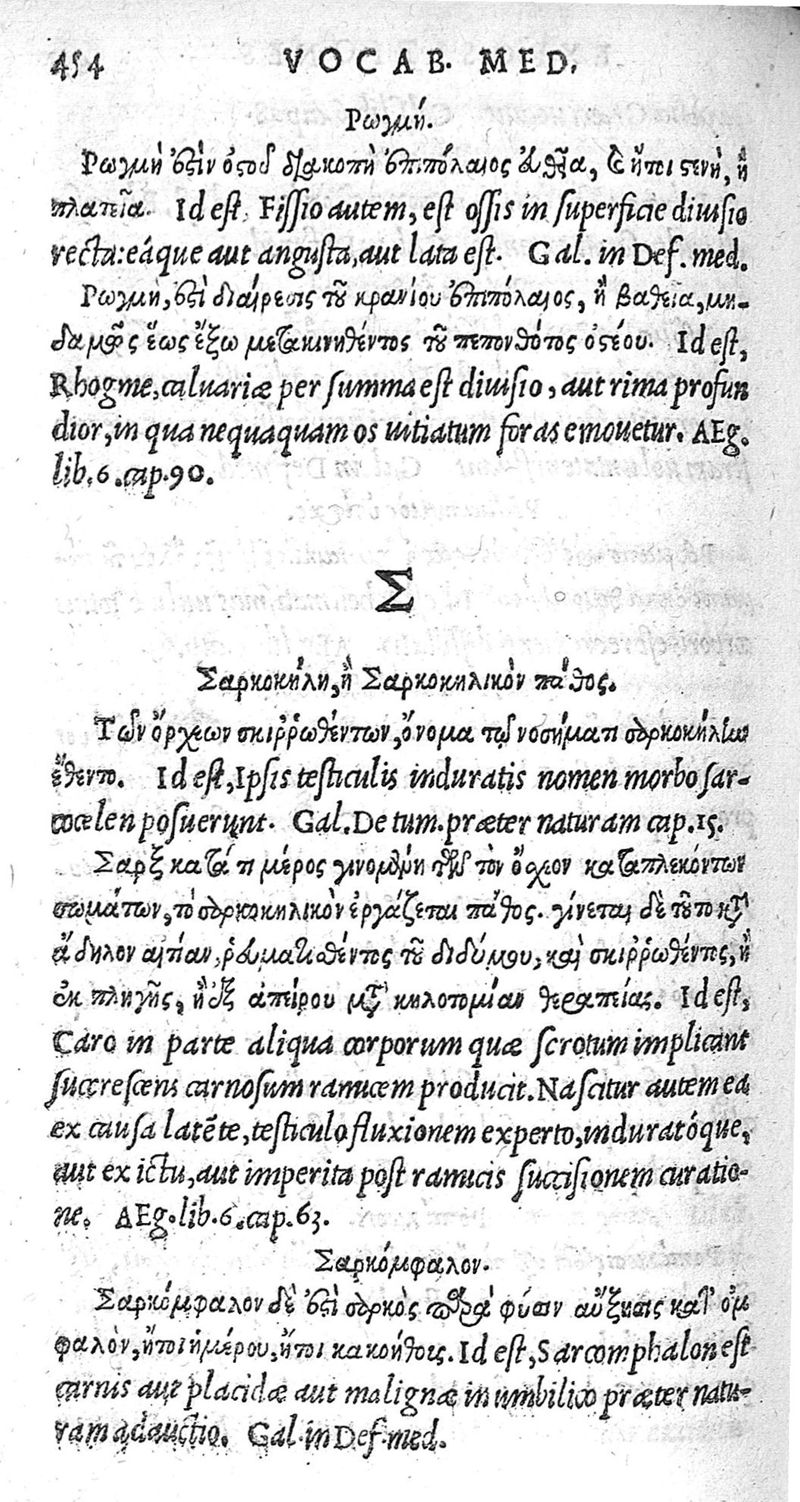 454 VOCAB. MED.
Ῥωγμή.
Ῥωγμὴ ἐστὶν ὀστοῦ διακοπὴ ἐπιπόλαιος εὐθεῖα, καὶ ἤτοι στενὴ, ἢ
πλατεῖα. Id est, Fissio autem, est ossis in superficie diuisio
recta: eáque aut angusta, aut lata est. Gal. in Def. med.
Ῥωγμὴ, ἐστὶ διαίρεσις τοῦ κρανίου ἐπιπόλαιος, ἢ βαθεῖα, μη-
δαμῶς ἕως ἔξω μετακινηθέντος τοῦ πεπονθότος ὀστέου. Id est,
Rhogme, caluariæ per summa est diuisio, aut rima profun
dior, in qua nequaquam os uitiatum foras emouetur. AEg.
lib. 6. cap. 90.
Σ
Σαρκοκήλη, ἢ Σαρκοκηλικὸν πάθος.
Τῶν ὄρχεων σκιῤῥωθέντων, ὄνομα τῷ νοσήματι σαρκοκήλην
ἔθεντο. Id est, Ipsis testiculis induratis nomen morbo sar-
cocelen posuerunt. Gal. De tum. præter naturam cap. 15.
Σὰρξ κατά τι μέρος γινομένη τῶν τὸν ὄσχεον καταπλεκόντων
σωμάτων, τὸ σαρκοκηλικὸν ἐργάζεται πάθος. γίνεται δὲ τοῦτο κατ'
ἄδηλον αἰτίαν, ῥευματισθέντος τοῦ διδύμου, καὶ σκιῤῥωθέντος, ἢ
ἐκ πληγῆς, ἢ ἐξ ἀπείρου μετὰ κηλοτομίαν θεραπείας. Id est,
Caro in parte aliqua corporum quæ scrotum implicant
succrescens carnosum ramicem producit. Nascitur autem ea
ex causa latēte, testiculo fluxionem experto, induratóque,
aut ex ictu, aut imperita post ramicis succisionem curatio-
ne. AEg. lib. 6. cap. 63.
Σαρκόμφαλον.
Σαρκόμφαλον δὲ ἐστὶ σαρκὸς παρὰ φύσιν αὔξησις κατ' ὀμ
φαλὸν, ἤτοι ἡμέρου, ἤτοι κακοήθους. Id est, Sarcomphalon est
carnis aut placidæ aut malignæ in umbilico præter natu-
ram adauctio. Gal. in Def. med.